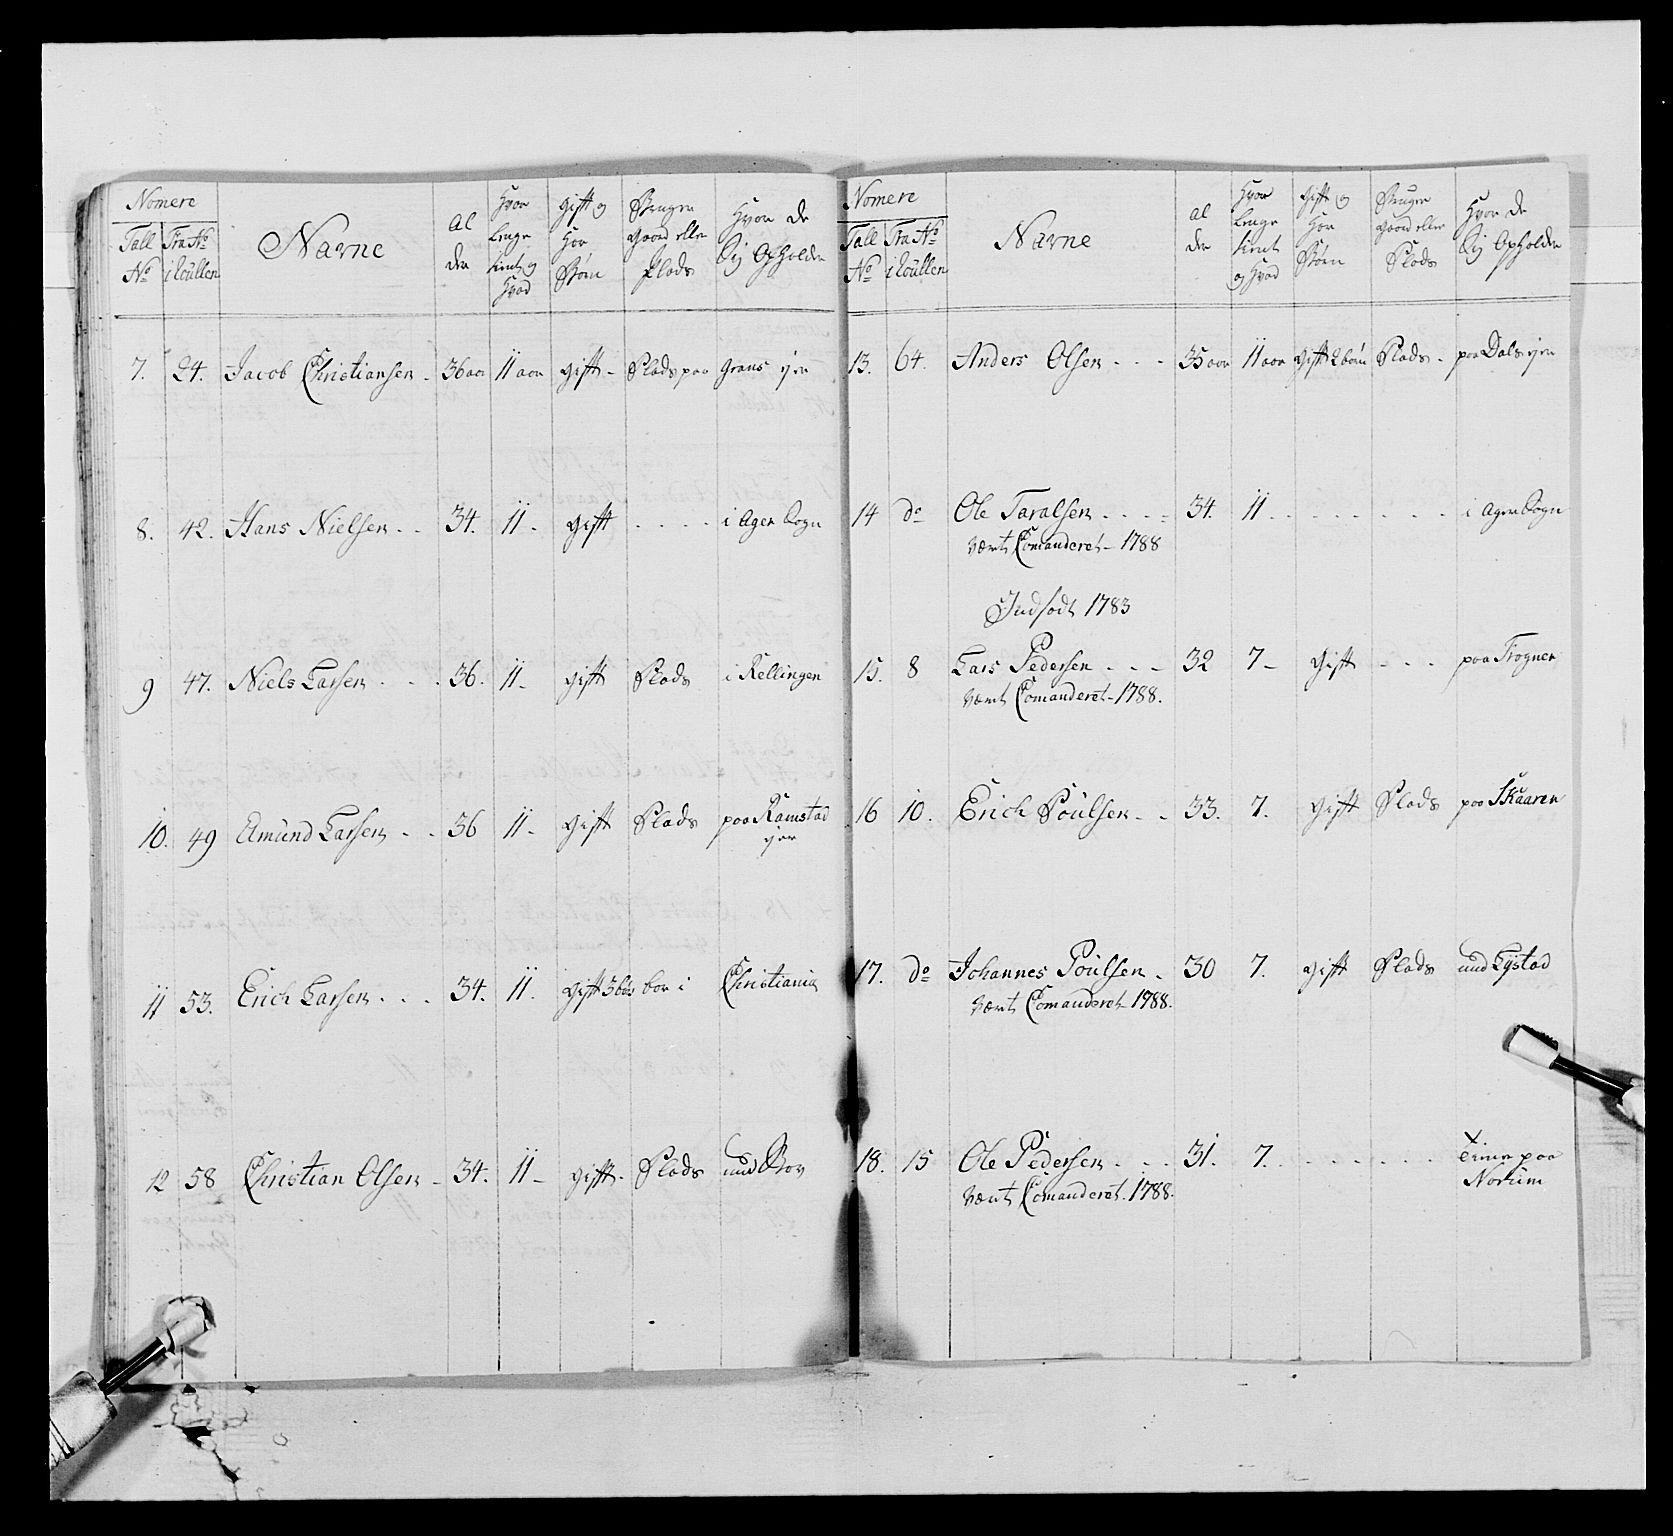 Nomere
Tall No | Fra No i Roullen | Navne | Al der | Hvor lenge tient og Hvad | Gift og Hor Børn | Bruger Gaard eller Plads | Hvor de Sig Opholder
7. 24. Jacob Christiansen - 36 aar 11 aar Gift - Plads paa Grans ejer
8. 42. Hans Nielsen - - 34. 11 - Gift - - - - i Ager Sogn
9 47. Niels Larsen - - - 36. 11 - Gift Plads i Kellingen
10. 49 Amund Larsen - - 36 11 - Gift Plads paa Ramstad
ejer
11 53. Erich Larsen - - - 34. 11. Gift 3 bør bor i Christiania
12 58 Christian Olsen - 34. 11 - Gift - Plads und Boy
Nomere
Tall No | Fra No i Roullen | Navne | Al der | Hvor lenge tient og Hvad | Gift og Hor Børn | Bruger Gaard eller Plads | Hvor de Sig Opholder
13. 64. Anders Olsen - - - 35 aar 11 aar Gift 2 børn Plads - paa Dals ejer
14 do Ole Taralsen - - - - 34. 11 - - - - - - - i Ager Sogn
Vært Comanderet - 1788
Indsodt 1783
15. 8 Lars Pedersen - - - 32 7 - Gift - - - paa Frogner
Vært Comanderet - 1788.
16 10. Erich Poulsen - - 33. 7. Gift Plads paa Skaaren
17. do Johannes Poulsen - 30 7. Gift Plads und Lystad
Vært Comanderet - 1788.
18. 15 Ole Pedersen - - - 31. 7. - - - - - - tiener paa
Vært Comanderet. 1788. Norum